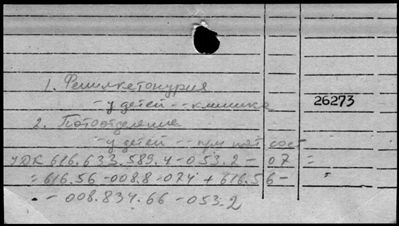 1. Фенилкетонурия
- у детей -- клиника
26273
2. Потоотделение
- у детей -- при пат. сост.
УДК 616.633.589.4-053.2-07 =
= 616.56-008.8-074 + 616.56-
- 008.834.66-053.2